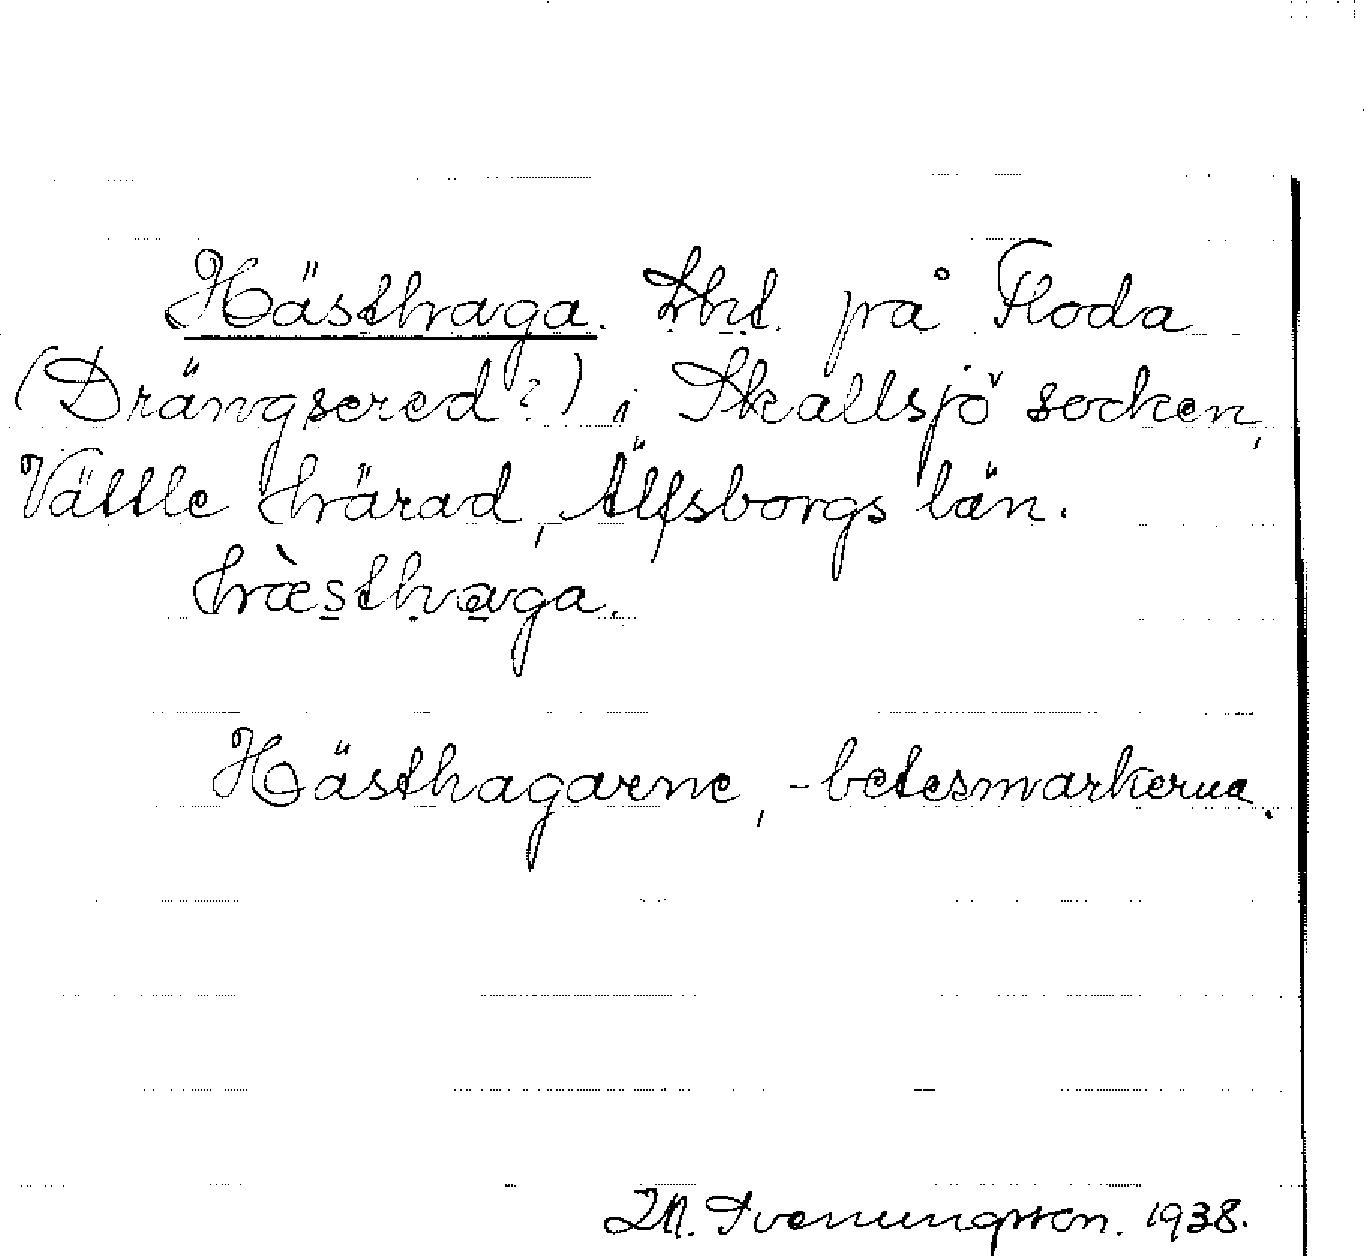 Hästhaga. Lht. på Floda
(Drängsered?) i Skallsjö socken,
Vättle härad, Älfsborgs län.
hæ̀sthaga.
Hästhagarne, -betesmarkerna.
M. Svenungsson. 1938.